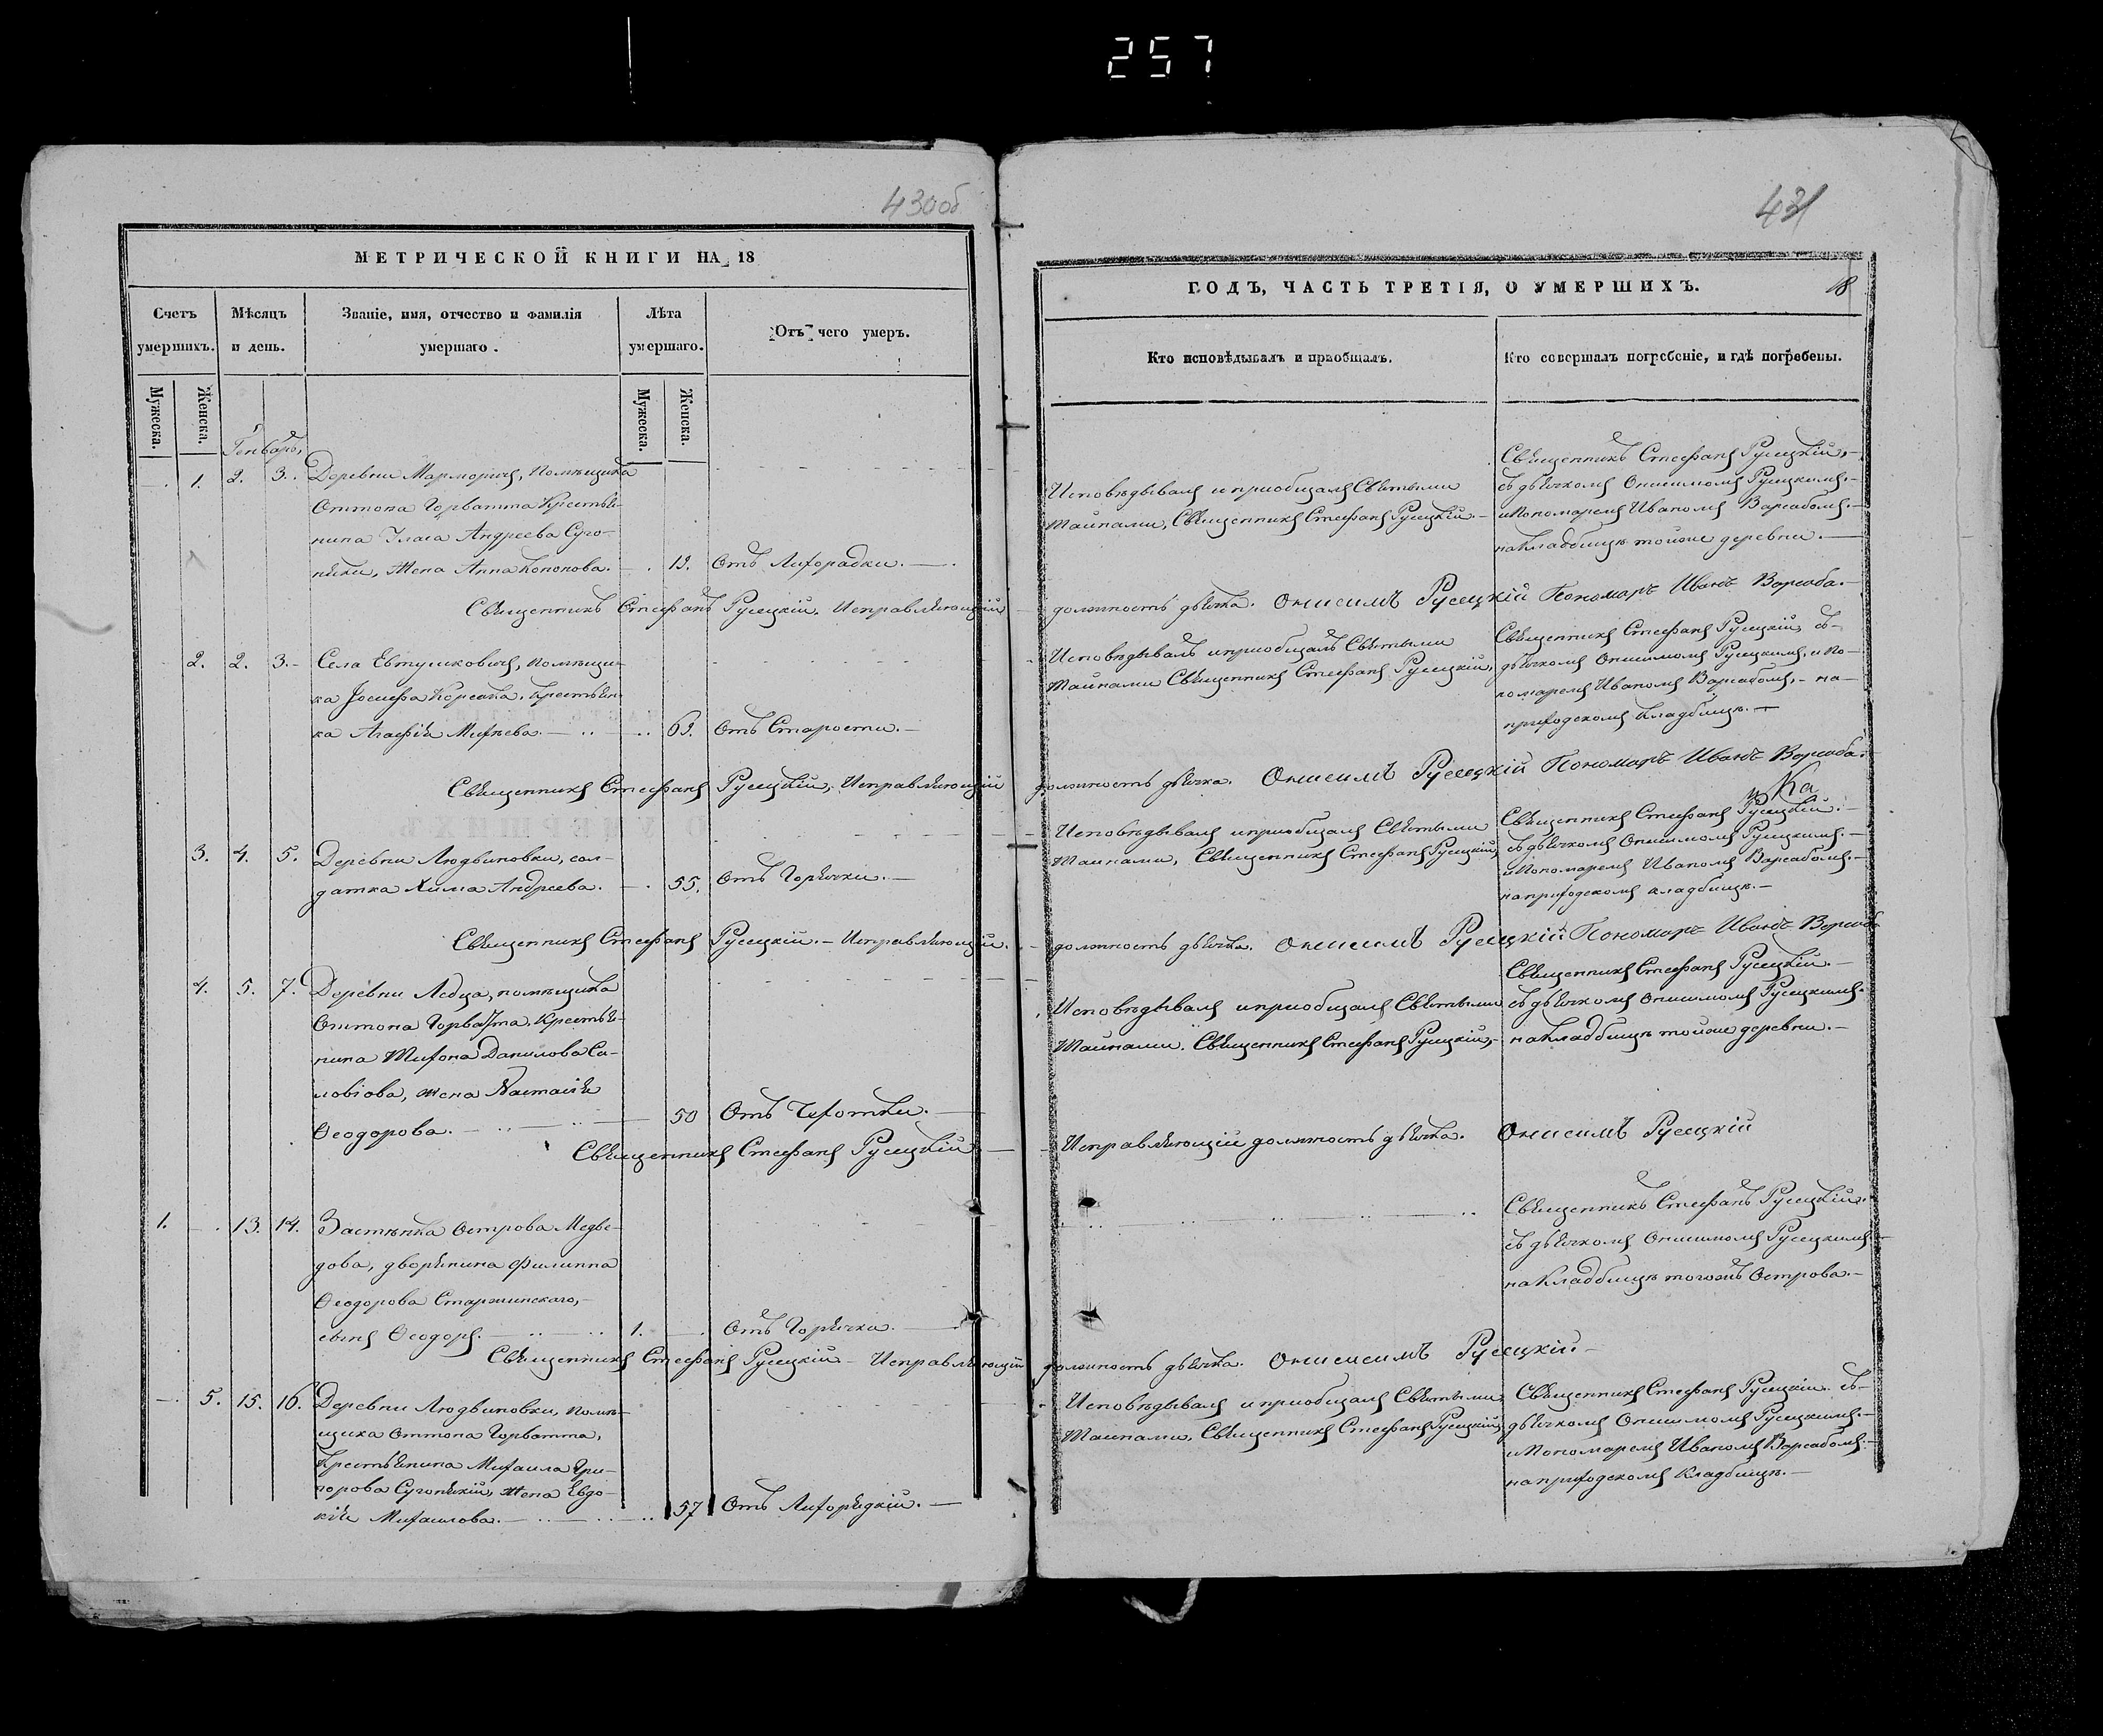 257
430об
431
МЕТРИЧЕСКОЙ КНИГИ НА 18
Счетъ умершихъ.
Мѣсяцъ и день.
Званіе, имя, отчество и фамилія умершаго.
Лѣта умершаго.
Отъ чего умеръ.
Мужеска.
Женска.
Мужеска.
Женска.
Генварь,
1. 2. 3. Деревни Мармовичъ, помѣщика
Оттона Горватта Крестья-
нина Власа Андреева Суго-
няки, жена Анна Кононова. 19. Отъ Лихорадки.
Священникъ Стефанъ Русецкій. Исправляющій
2. 2. 3. Села Евтушковичъ, помѣщи-
ка Іосифа Корсака, крестьян-
ка Агафія Михѣева. 63. Отъ Старости.
Священникъ Стефанъ Русецкій, Исправляющій
3. 4. 5. Деревни Людвиновки, сол-
датка Хима Андреева. 55. Отъ Горячки.
Священникъ Стефанъ Русецкій. Исправляющій
4. 5. 7. Деревни Ледца, помѣщика
Оттона Горватта, Крестья-
нина Тихона Данилова Са-
жена Настасія
Ѳеодорова. 50 Отъ Чехотки.
Священникъ Стефанъ Русецкій
1. 13. 14. Застѣнка Острова Медве-
дова, дворянина Филиппа
Ѳеодорова Старжинскаго,
сынъ Ѳеодоръ. 1. Отъ Горячки.
Священникъ Стефанъ Русецкій Исправляющій
5. 15. 16. Деревни Людвиновки, помѣ-
щика Оттона Горватта,
Крестьянина Михаила Гри-
горова Сугонякій, жена Евдо-
кія Михаилова. 57 Отъ Лихорядкій.
ГОДЪ, ЧАСТЬ ТРЕТІЯ, О УМЕРШИХЪ.
18
Кто исповѣдывалъ и пріобщалъ.
Кто совершалъ погребеніе, и гдѣ погребены.
Исповѣдывалъ и приобщалъ Святыми
Тайнами, Священникъ Стефанъ Русецкій.
Священникъ Стефанъ Русецкій,
съ дьячкомъ Онисимомъ Русецкимъ.
и Пономаремъ Иваномъ Варсабомъ.
на Кладбищѣ тойже деревни.
должность дьячка. Онисимъ Русецкій Пономарь Иванъ Варсаба.
Исповѣдывалъ и приобщалъ Святыми
Тайнами Священникъ Стефанъ Русецкій,
Священникъ Стефанъ Русецкій, съ
дьячкомъ Онисимомъ Русецкимъ, и По-
номаремъ Иваномъ Варсабомъ, на
приходскомъ Кладбищѣ.
должность дьячка. Онисимъ Русецкій Пономарь Иванъ Варсаба.
Исповѣдывалъ и приобщалъ Святыми
Тайнами, Священникъ Стефанъ Русецкій,
Священникъ Стефанъ Русецкій.
съ дьячкомъ Онисимомъ Русецкимъ.
и Пономаремъ Иваномъ Варсабомъ.
на приходскомъ кладбищѣ.
должность дьячка. Онисимъ Русецкій Пономарь Иванъ Варсаба
Исповѣдывалъ и приобщалъ Святыми
Тайнами. Священникъ Стефанъ Русецкій,
Священникъ Стефанъ Русецкій.
съ дьячкомъ Онисимомъ Русецкимъ.
на Кладбищѣ тойже деревни.
Исправляющій должность дьячка. Онисимъ Русецкій
Священникъ Стефанъ Русецкій.
съ дьячкомъ Онисимомъ Русецкимъ
на Кладбищѣ тогожъ Острова.
должность дьячка. Онисимъ Русецкій.
Исповѣдывалъ и приобщалъ Святыми
Тайнами, Священникъ Стефанъ Русецкій,
Священникъ Стефанъ Русецкій съ
дьячкомъ Онисимомъ Русецкимъ.
и Пономаремъ Иваномъ Варсабомъ.
на приходскомъ Кладбищѣ.